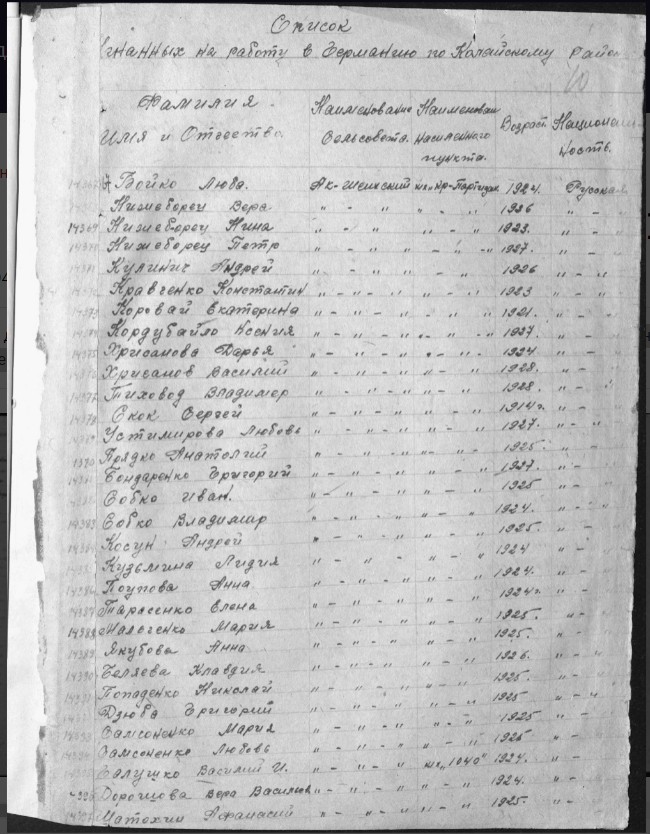 Список
гнанных на работу в Германию по Колайскому Райо
10
Фамилия Имя и Отчество. Наименование Сельсовета. Наименован населенного пункта. Возраст Национальность.
Бойко Люба. Ак-Шеихский Кр-Партизан 1924. Русская
Нижеборец Вера " - " " " - " 1926 " - "
14369 Нижеборец Нина " - " " " - " 1923. " - "
Нижеборец Петр " - " " " - " - " 1927. " -
Кулинич Андрей " - " " " - " 1926 " - "
Кравченко Константин " - " - " " " - " 1923 " - "
Коровай Екатерина " - " - " " " - " 1921. " -
Кордубайло Ксения " - " - " " " - " 1927. " -
Хрисанова Дарья " - " - " " " - " 1924 " -
Хрисанов Василий " - " - " " " - " 1928. " -
Тиховод Владимер " - " - " " " - " 1928. " -
Скок Сергей " - " - " " " - " 1914 г. " -
Устимирова Любовь " - " - " " " - " 1927. " - "
Прядко Анатолий " - " - " " " - " 1925. " -
Бондаренко Григорий " - " - " " " - " 1927. " -
Собко Иван. " - " - " " " - " 1925 " -
14383 Собко Владимир " - " - " " " - " 1924. " -
Косун Андрей " - " - " " " - " 1925. " -
Кузьмина Лидия " - " - " " " - " 1924 " -
Поупова Анна " - " - " " " - " 1924. " -
14387 Тарасенко Елена " - " - " " " - " 1924 г. " -
14388 Мальченко Мария " - " - " " " - " 1925. " -
14389 Якубова Анна " - " - " " " - " 1925. " -
14390 Беляева Клавдия " - " - " " " - " 1926. " -
Попаденко Николай " - " - " " " - " 1925. " -
Дзюба Григорий " - " - " " " - " 1925 " - "
Самсоненко Мария " - " - " " " - " 1925 " -
Самсоненко Любовь " - " - " " " - " 1925 " -
Галушко Василий И. " - " - " " "1040" 1924. " -
Дорогцова Вера Василев " - " - " " " - " 1924. " -
Цатохин Афанасий " - " - " " " - " 1925. " -